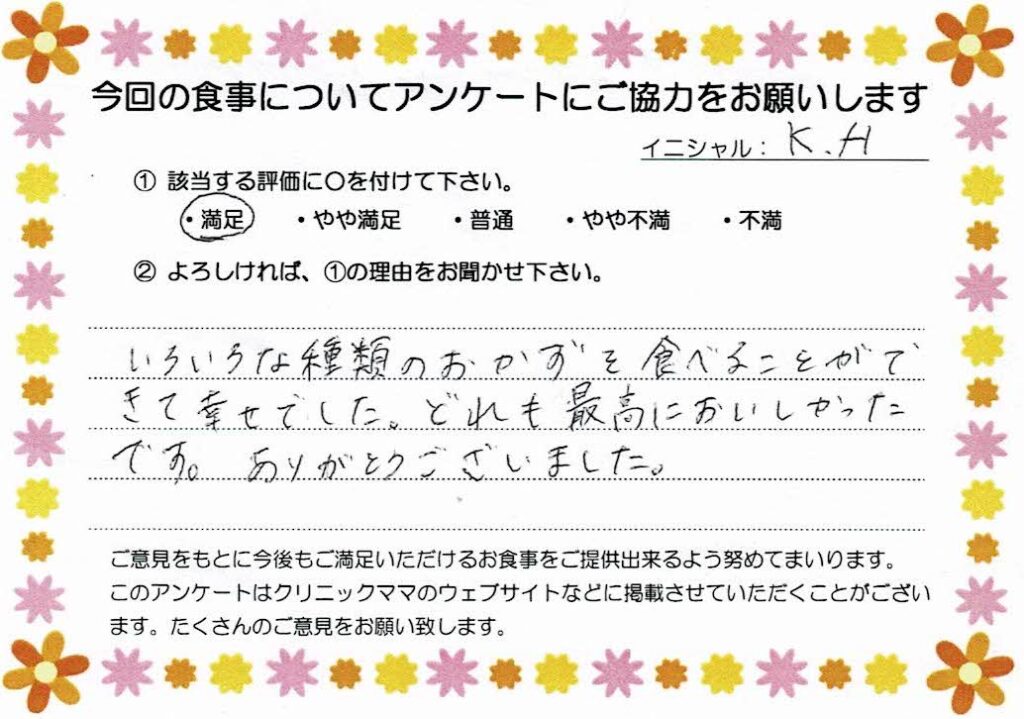 今回の食事についてアンケートにご協力をお願いします
イニシャル： K.H
① 該当する評価に〇を付けて下さい。
・満足 ・やや満足 ・普通 ・やや不満 ・不満
② よろしければ、①の理由をお聞かせ下さい。
いろいろな種類のおかずを食べることがで
きて幸せでした。どれも最高においしかった
です。ありがとうございました。
ご意見をもとに今後もご満足いただけるお食事をご提供出来るよう努めてまいります。
このアンケートはクリニックママのウェブサイトなどに掲載させていただくことがござい
ます。たくさんのご意見をお願い致します。